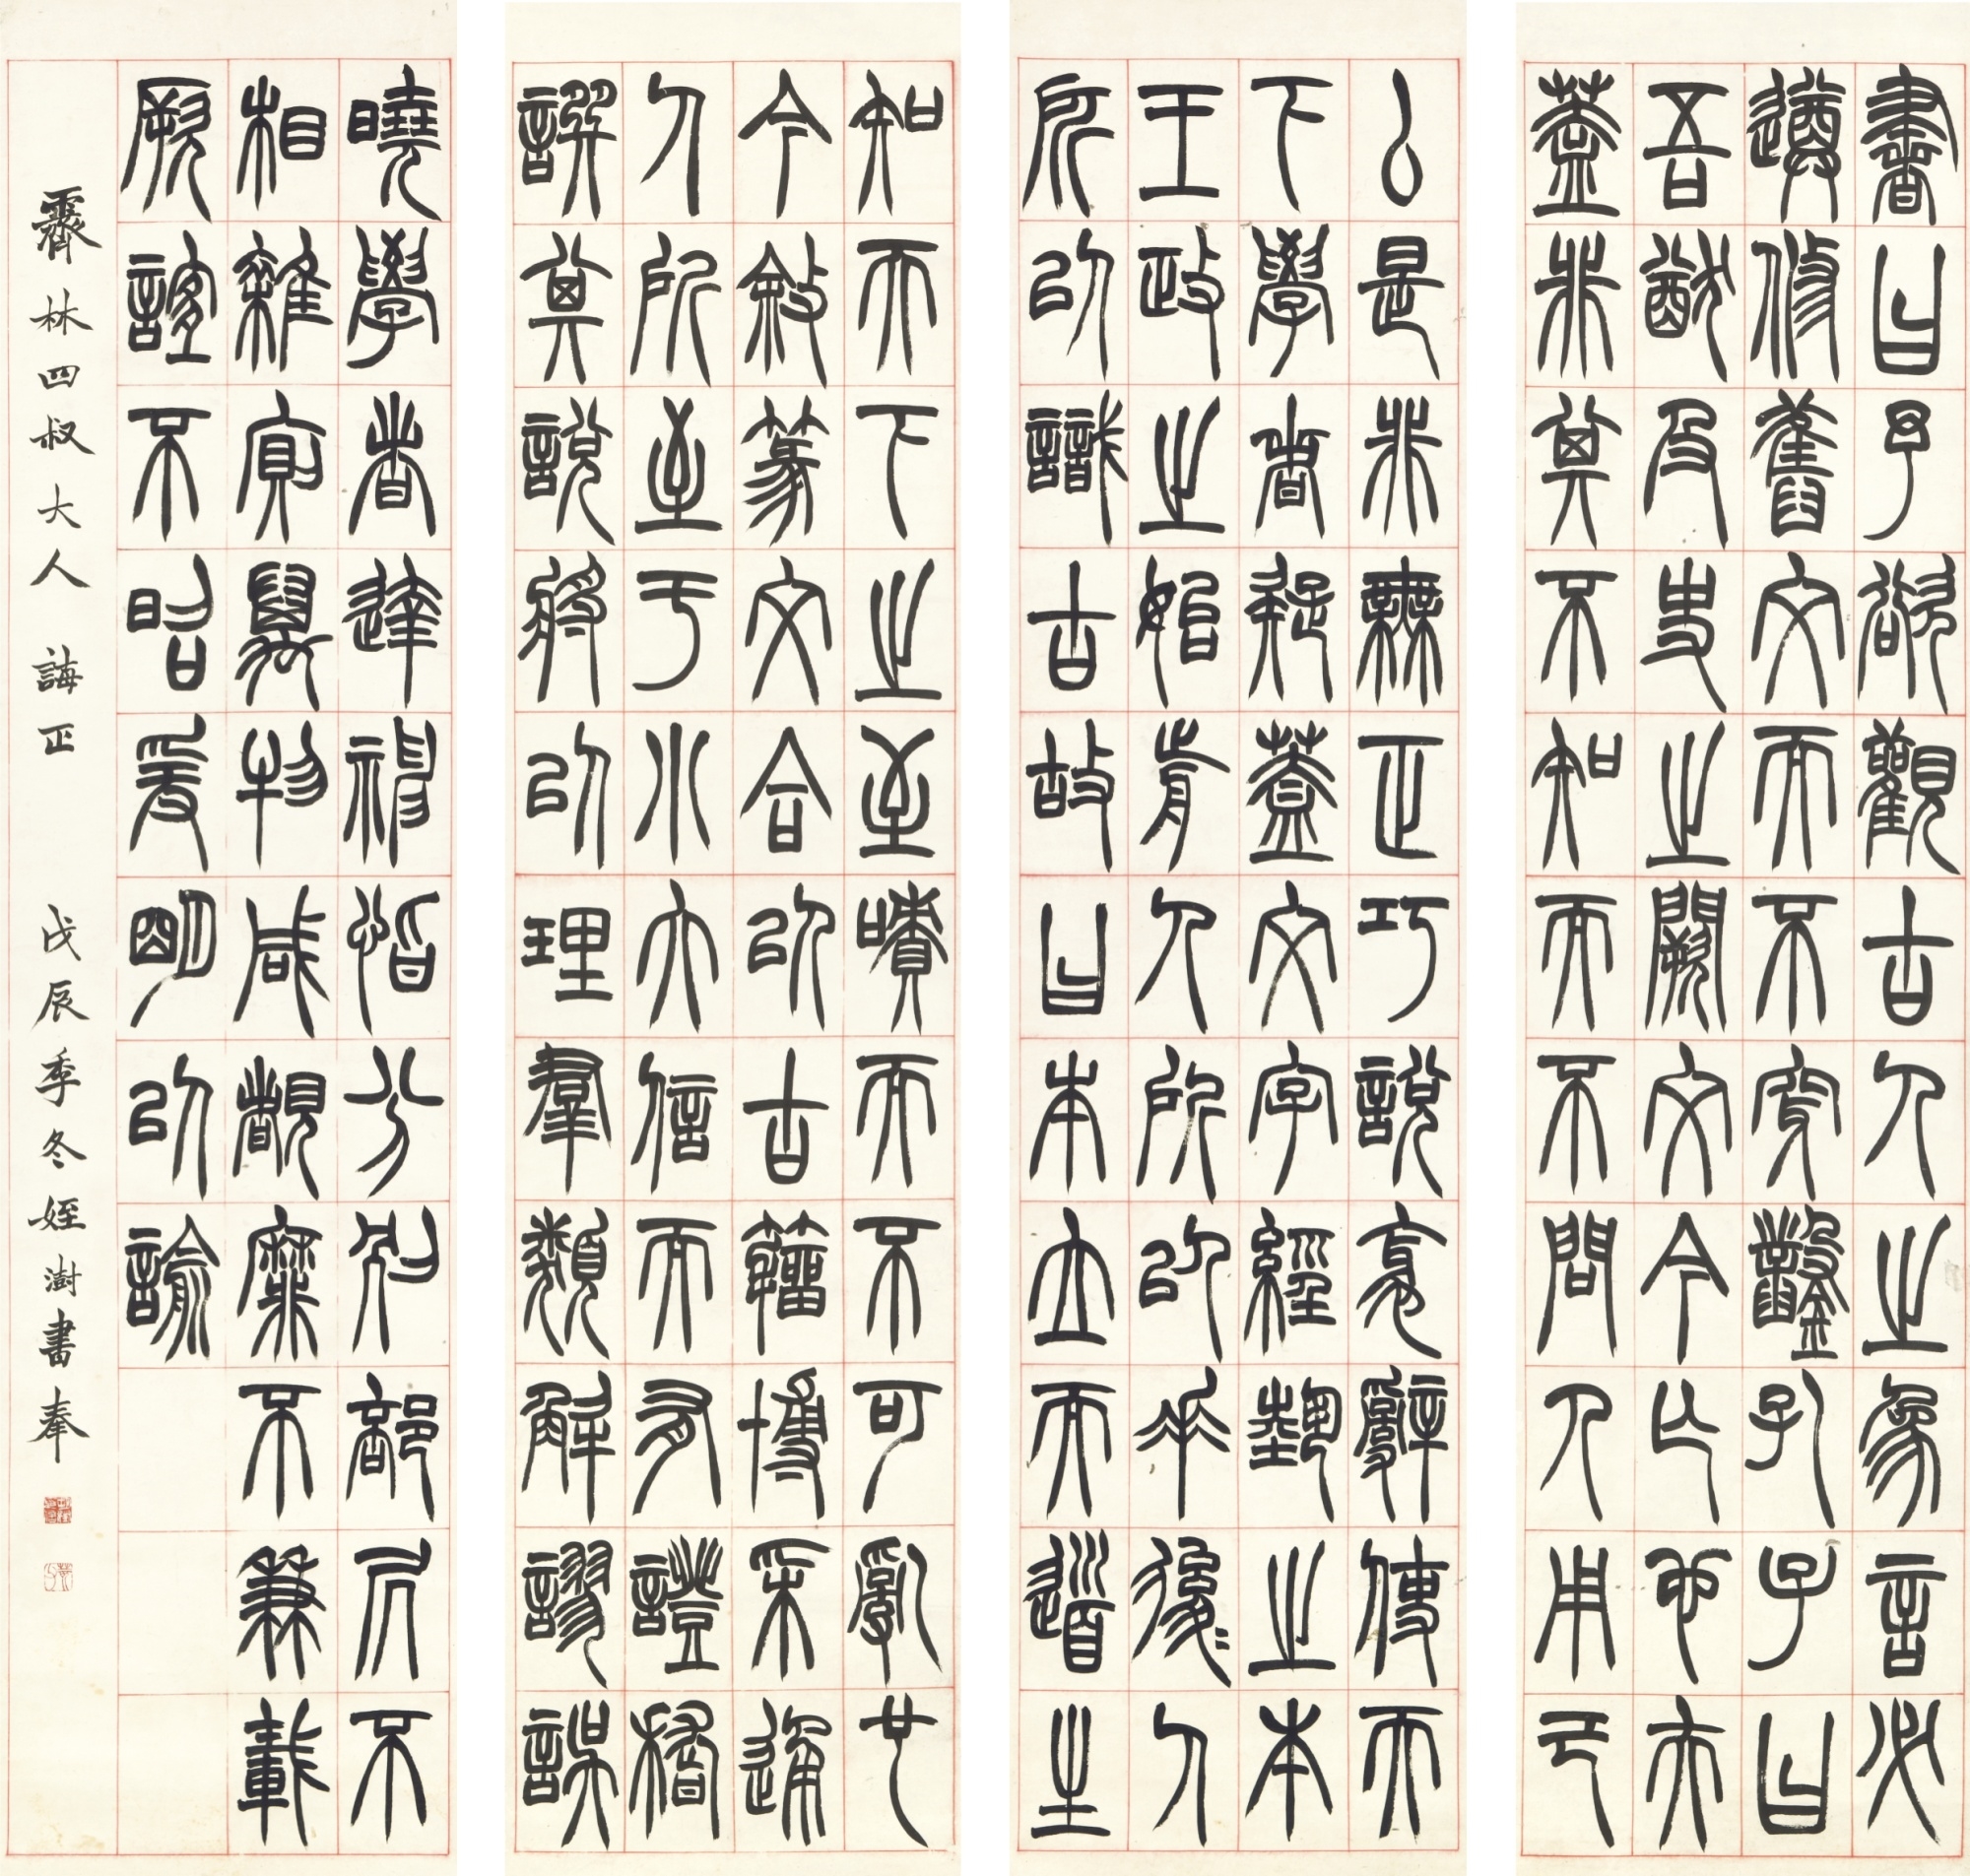 書曰予欲觀古人之象言必
遵修舊文而不穿鑿孔子曰
吾猶及史之闕文今亡也夫
蓋非其不知而不問人用己
厶是非無正巧說衺辭使天
下學者疑蓋文字經藝之本
王政之始前人所以垂後〻人
所以識古故曰本立而道生
知天下之至嘖而不可亂也
今敘篆文合以古籀博采通
人所至于小大信而有證稽
譔其說將以理羣類解謬誤
曉學者達神恉分別部居不
相雜廁萬物咸覩靡不兼載
厥誼不昭爰明以諭
霽林四叔大人 誨正 戊辰季冬姪澍書奉